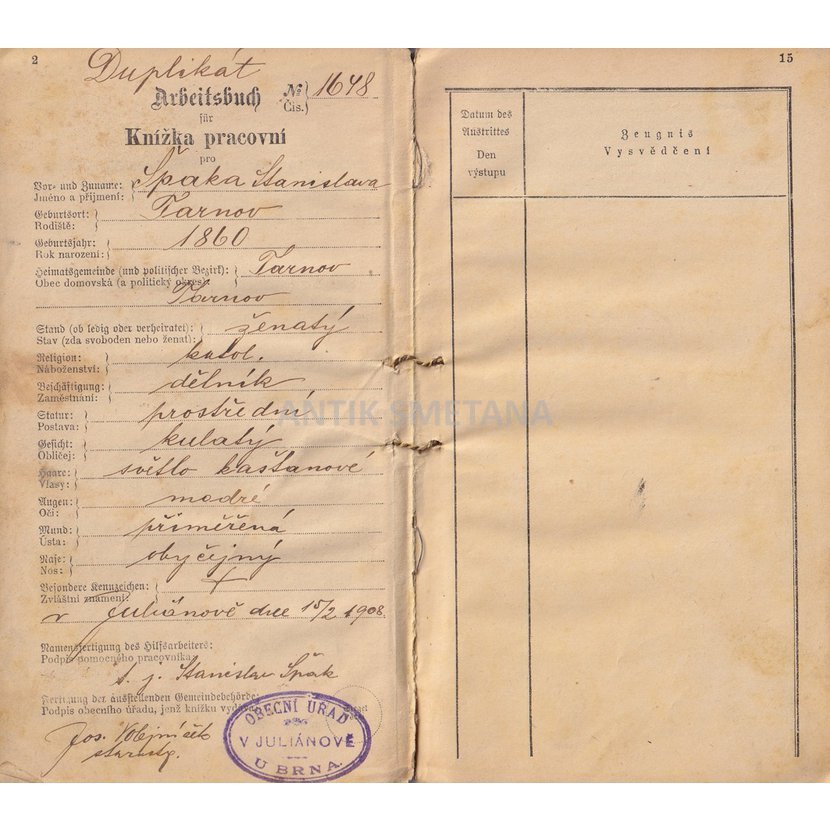 2
Duplikát
Arbeitsbuch № 1648
für Čis.
Knížka pracovní
pro
Vor- und Zuname: Špaka Stanislava
Jméno a příjmení:
Geburtsort: Tarnov
Rodiště:
Geburtsjahr: 1860
Rok narození:
Heimatsgemeinde (und politischer Bezirk): Tarnov
Obec domovská (a politický okres):
Tarnov
Stand (ob ledig oder verheiratet): ženatý
Stav (zda svoboden nebo ženat):
Religion: katol.
Náboženství:
Beschäftigung: dělník
Zaměstnání:
Statur: prostřední
Postava:
Gesicht: kulatý
Obličej:
Haare: světlo kaštanové
Vlasy:
Augen: modré
Oči:
Mund: přiměřená
Ústa:
Nase: obyčejný
Nos:
Besondere Kennzeichen:
Zvláštní znamení:
v Juliánově dne 15/2 1908.
Namensfertigung des Hilfsarbeiters:
Podpis pomocného pracovníka
Stanislav Špak
Fertigung der ausstellenden Gemeindebehörde:
Podpis obecního úřadu, jenž knížku
Jos.
starosta.
OBECNÍ ÚŘAD
V JULIÁNOVĚ
U BRNA.
ANTIK SMETANA
15
Datum des
Austrittes
Den
výstupu
Zeugnis
Vysvědčení